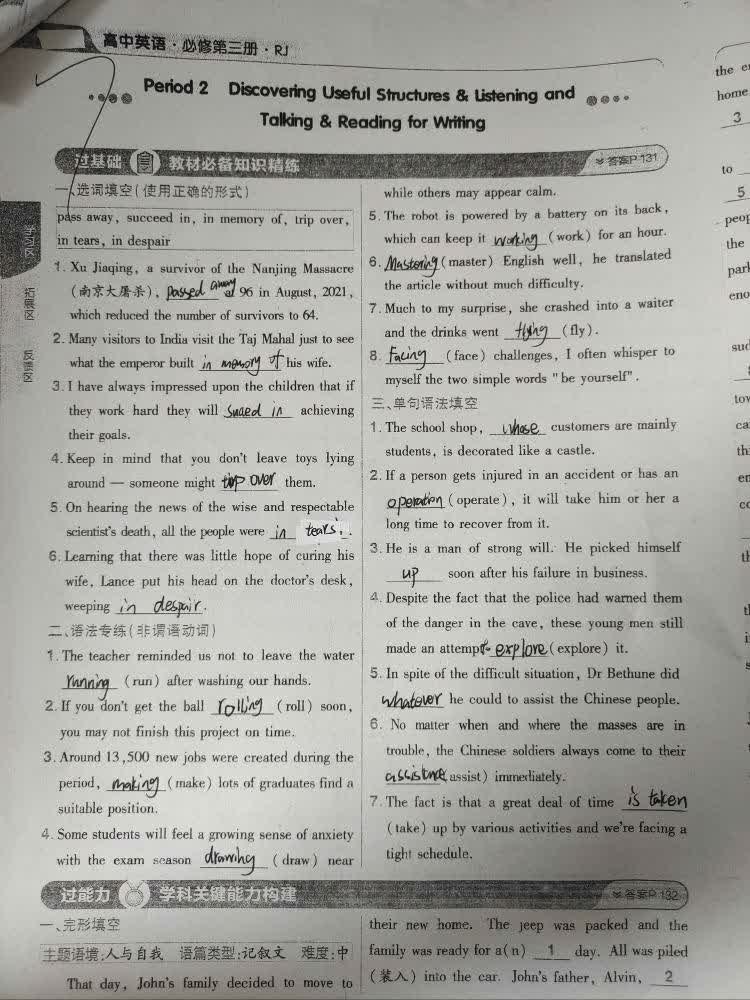 高中英语·必修第三册·RJ
Period 2 Discovering Useful Structures & Listening and
Talking & Reading for Writing
过基础 教材必备知识精练 答案P 131
一、选词填空(使用正确的形式)
pass away, succeed in, in memory of, trip over,
in tears, in despair
1. Xu Jiaqing, a survivor of the Nanjing Massacre
(南京大屠杀), passed away at 96 in August, 2021,
which reduced the number of survivors to 64.
2. Many visitors to India visit the Taj Mahal just to see
what the emperor built in memory of his wife.
3. I have always impressed upon the children that if
they work hard they will in achieving
their goals.
4. Keep in mind that you don't leave toys lying
around — someone might trip over them.
5. On hearing the news of the wise and respectable
scientist's death, all the people were in tears.
6. Learning that there was little hope of curing his
wife, Lance put his head on the doctor's desk,
weeping in despair.
二、语法专练(非谓语动词)
1. The teacher reminded us not to leave the water
running (run) after washing our hands.
2. If you don't get the ball rolling (roll) soon,
you may not finish this project on time.
3. Around 13,500 new jobs were created during the
period, making (make) lots of graduates find a
suitable position.
4. Some students will feel a growing sense of anxiety
with the exam season drawing (draw) near
while others may appear calm.
5. The robot is powered by a battery on its back,
which can keep it working (work) for an hour.
6. Mastering (master) English well, he translated
the article without much difficulty.
7. Much to my surprise, she crashed into a waiter
and the drinks went flying (fly).
8. Facing (face) challenges, I often whisper to
myself the two simple words "be yourself".
三、单句语法填空
1. The school shop, whose customers are mainly
students, is decorated like a castle.
2. If a person gets injured in an accident or has an
operation (operate), it will take him or her a
long time to recover from it.
3. He is a man of strong will. He picked himself
up soon after his failure in business.
4. Despite the fact that the police had warned them
of the danger in the cave, these young men still
made an attempt to explore (explore) it.
5. In spite of the difficult situation, Dr Bethune did
whatever he could to assist the Chinese people.
6. No matter when and where the masses are in
trouble, the Chinese soldiers always come to their
assistance assist) immediately.
7. The fact is that a great deal of time is taken
(take) up by various activities and we're facing a
tight schedule.
过能力 学科关键能力构建 答案P 132
一、完形填空
主题语境:人与自我 语篇类型:记叙文 难度:中
That day, John's family decided to move to
their new home. The jeep was packed and the
family was ready for a(n) 1 day. All was piled
(装入) into the car. John's father, Alvin, 2
学习区
拓展区
反馈区
home
3
to
5
the